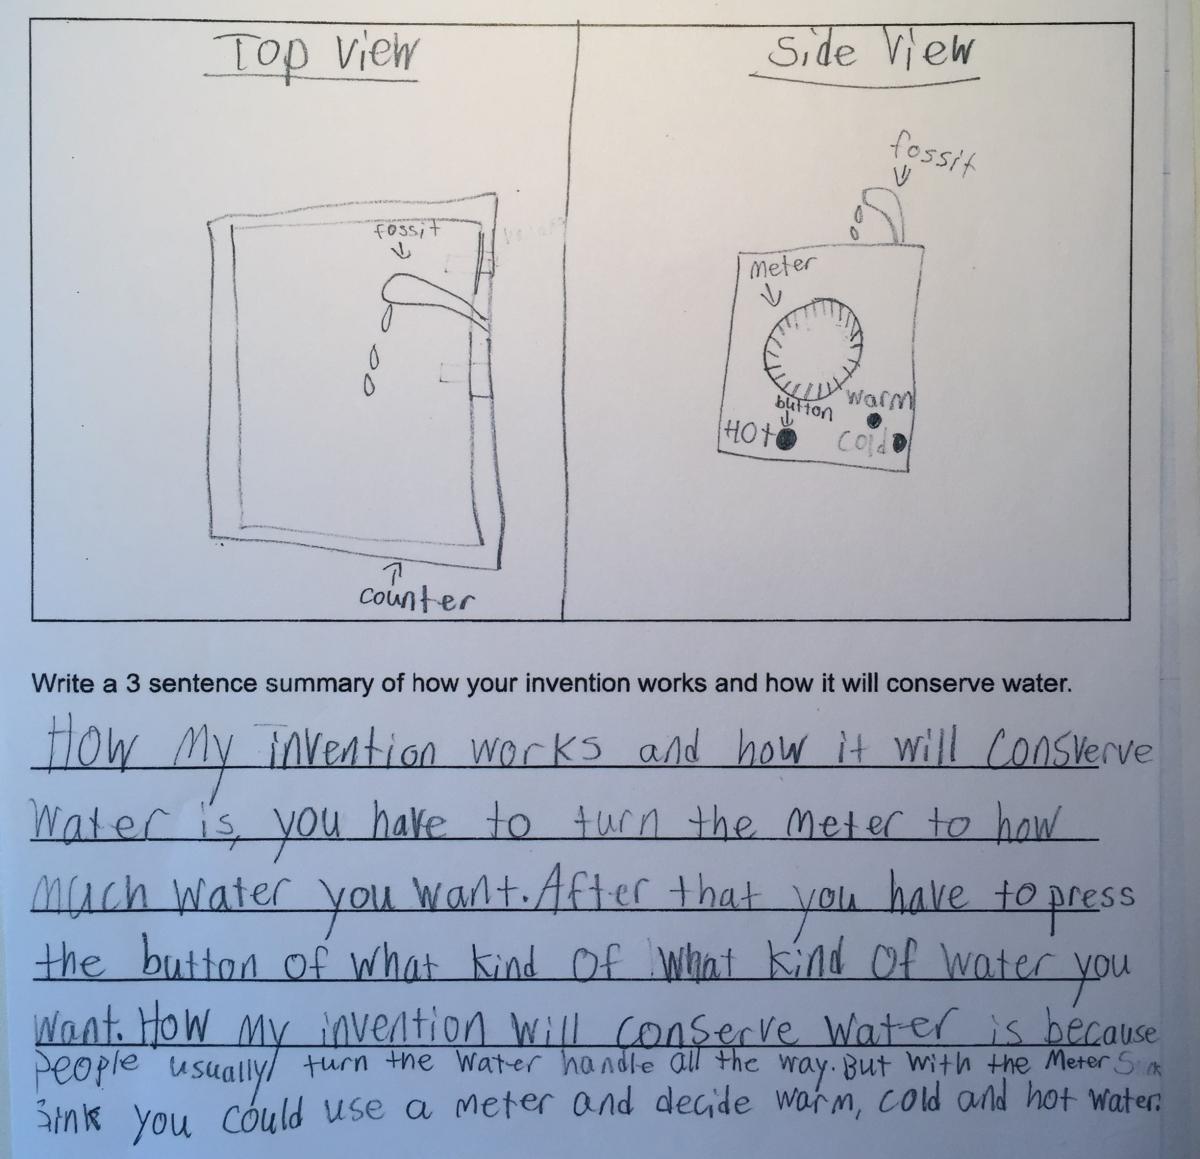 Top View
Side View
fossit
fossit
Meter
Warm
button
Hot
Cold
counter
Write a 3 sentence summary of how your invention works and how it will conserve water.
How My invention works and how it will Consverve
Water is, you have to turn the Meter to how
Much Water you want. After that you have to press
the button of what kind of what kind of water you
want. How my invention will conserve water is because
people usually turn the water handle all the way. But with the Meter
Sink you could use a meter and decide warm, cold and hot water.